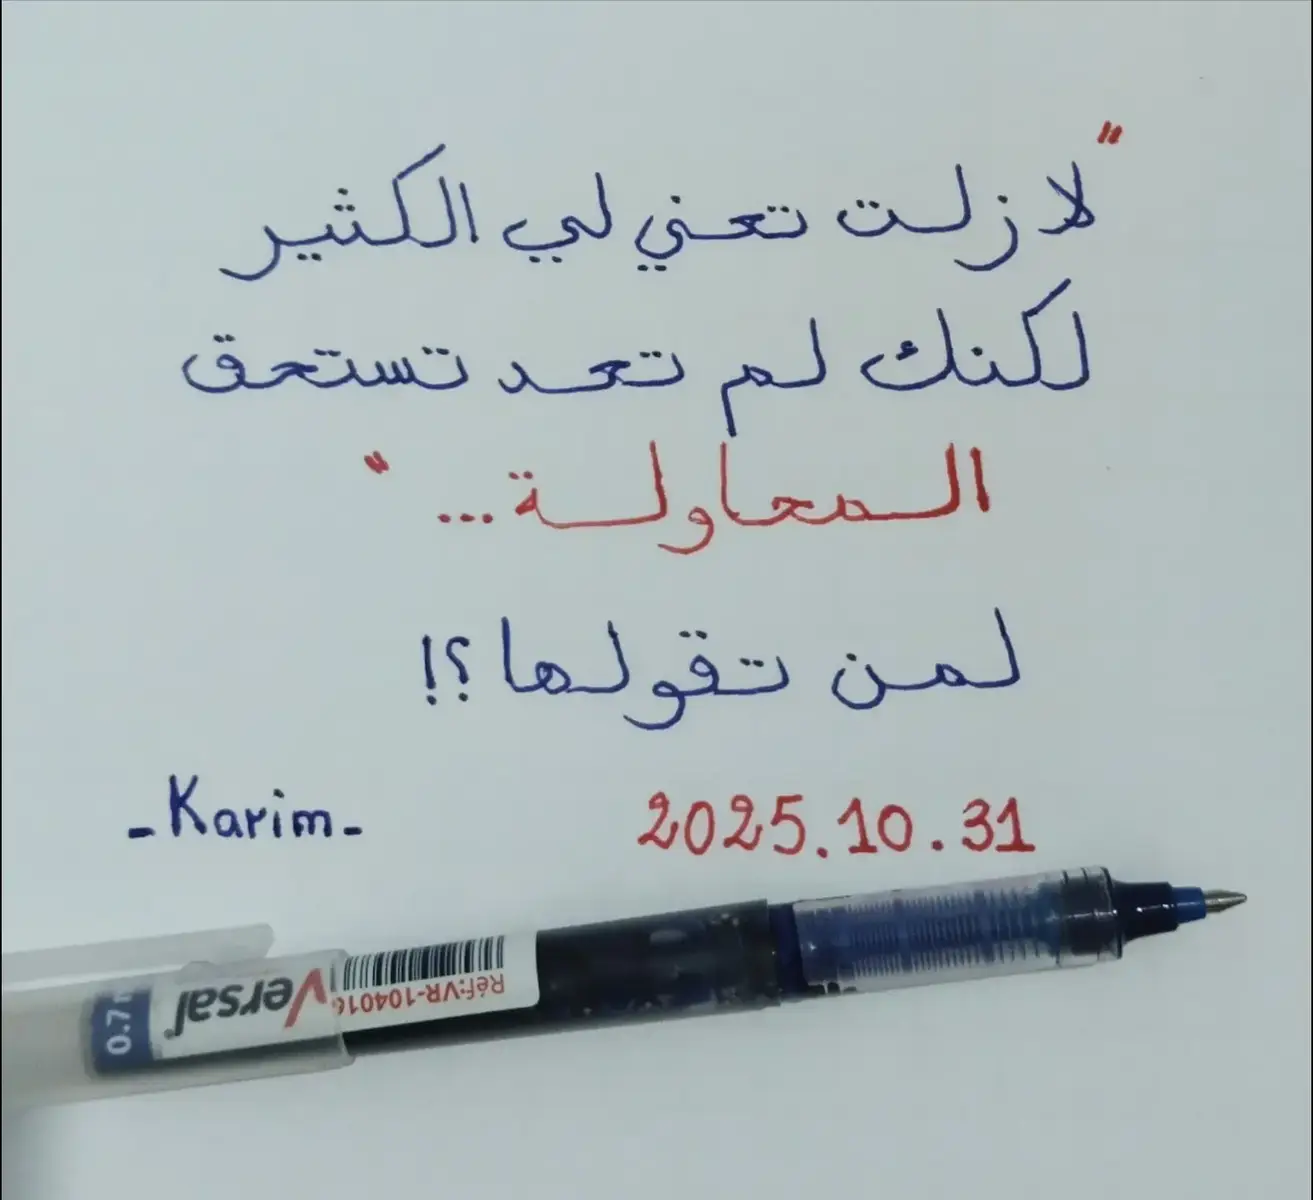 "لا زلت تعني لي الكثير
لكنك لم تعد تستحق
المحاولة..."
لمن تقولها؟!
-Karim- 2025.10.31
0.7
Versal
Réf:VR-104016